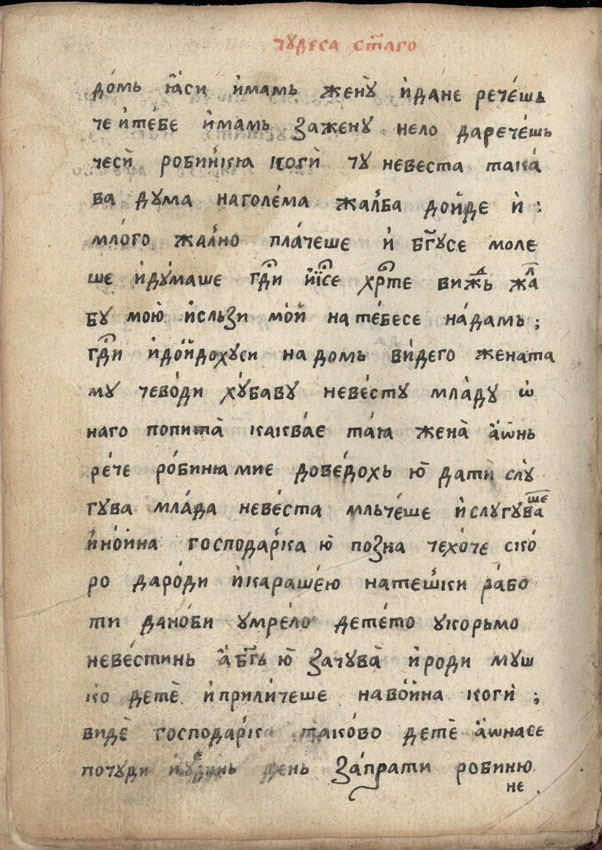 чꙋдеса ст҃аго
домь ꙗ҆си и҆мамь женꙋ̀ и҆дане рече́шь
че и҆те́бе и҆мамь заженꙋ нело даречешь
чесѝ робинкꙗ когѝ чꙋ невеста така̀
ва дꙋма наголе́ма жал̾ба дойде ѝ :
мло́го жал̾но пла́чеше и҆ бг҃ꙋсе моле
ше и҆дꙋ́маше гд҃и і҆и҃се хр҃те виждь жал
бꙋ мою̀ и҆сльзи мо́й на те́бесе на́дамь ;
гд҃и и҆до́йдохꙋси на домь ви́дего жената
мꙋ чево́ди хꙋ́бавꙋ неве́стꙋ мла́дꙋ ѡ
наго попита̀ каква́е та́ꙗ жена̀ а҆ѡ́нь
ре́че ро́биню мие дове́дохь ю҆ дати слꙋ
гꙋва мла́да неве́ста мльче́ше и҆слꙋгꙋ́ваше
и҆но́йна господа́рка ю҆ позна чехо́че ско́
ро даро́ди и҆караше́ю натешки ра́бо
ти дано́би ꙋмре́ло дете́то ꙋкорьмо
неве́стинь а҆бг҃ь ю҆ зачꙋва̀ и҆роди мꙋш
ко детѐ и҆прили́чеше наво́йна когѝ ;
виде господа́рка тако́во детѐ а҆ѡнасе
почꙋди и҆ день запра́ти робиню
не